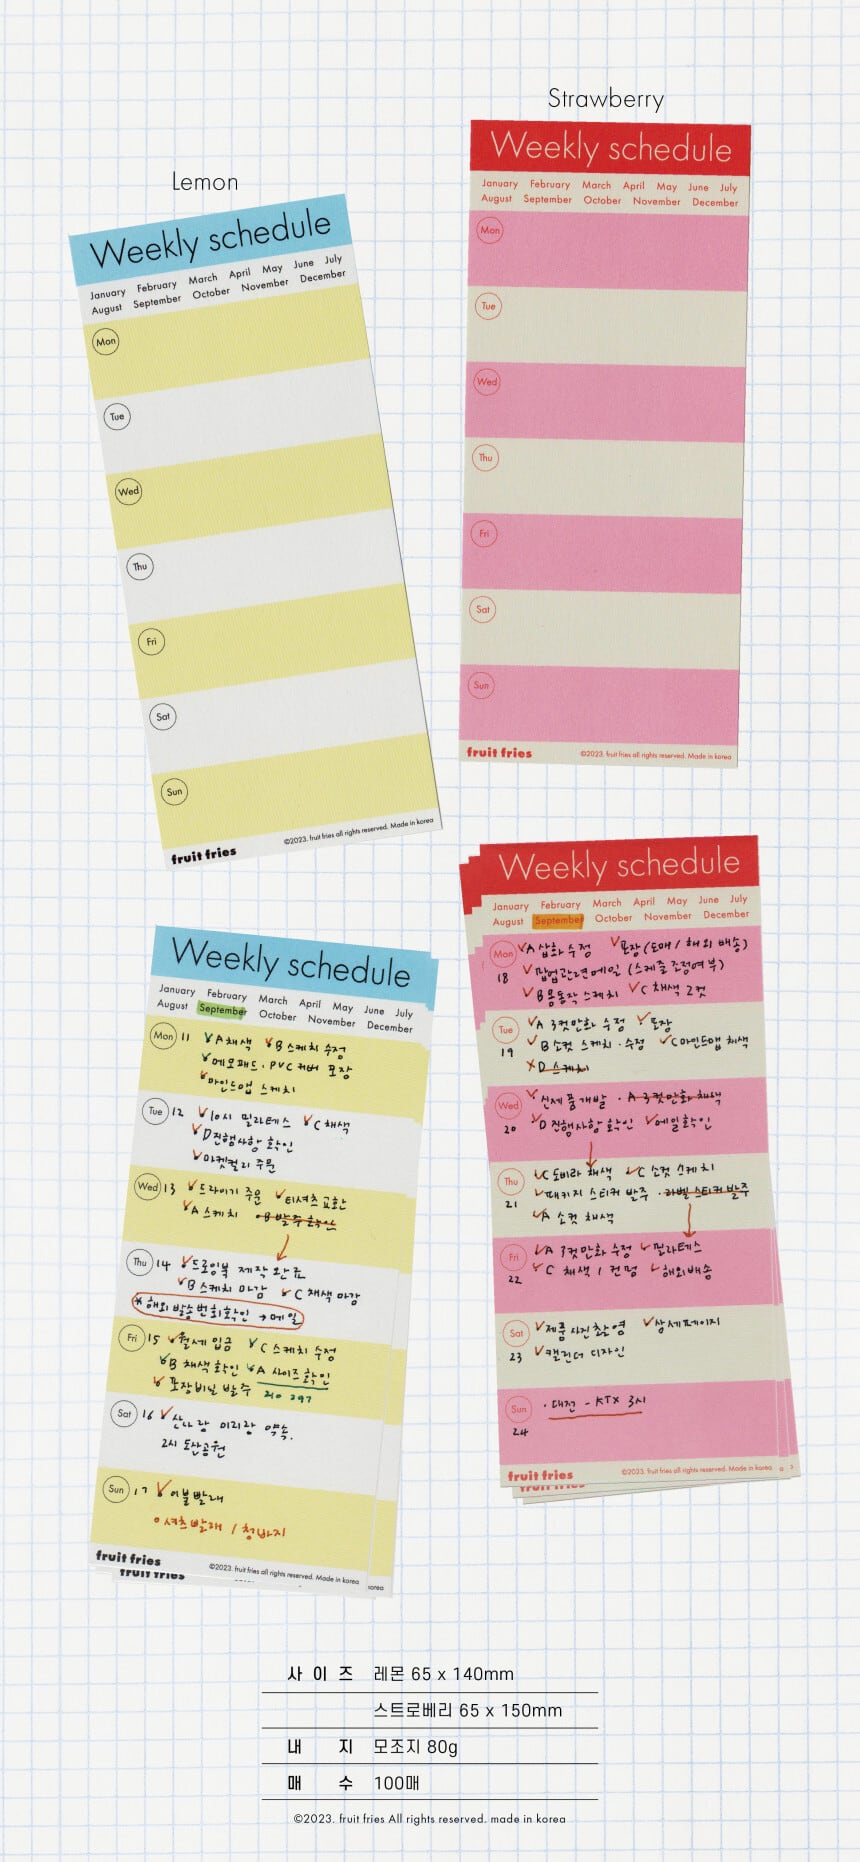 Strawberry
Weekly schedule
January February March April May June July
August September October November December
Mon
Tue
Wed
Thu
Fri
Sat
Sun
fruit fries
©2023. fruit fries all rights reserved. Made in korea
Lemon
Weekly schedule
January February March April May June July
August September October November December
Mon
Tue
Wed
Thu
Fri
Sat
Sun
fruit fries
©2023. fruit fries all rights reserved. Made in korea
Weekly schedule
January February March April May June July
August September October November December
Mon A 삽화 수정 포장 (도매 / 해외 배송)
18 팝업 관련 메일 (스케줄 조정여부)
B 응동작 스케치 C 채색 2컷
Tue A 3컷만화 수정 포장
19 B 소컷 스케치 · 수정 C 마인드맵 채색
D 스케치
Wed 신제품 개발 · A 3컷만화 채색
20 D 진행사항 확인 메일확인
Thu C 도비라 채색 C 소컷 스케치
21 패키지 스티커 발주 · 라벨 스티커 발주
A 소컷 채색
Fri A 3컷만화 수정 필라테스
22 C 채색 1 컨펌 해외배송
Sat 제품 사진 촬영 상세페이지
23 캘린더 디자인
Sun · 대전 - KTX 3시
24
fruit fries
©2023. fruit fries all rights reserved. Made in korea
fruit fries
Weekly schedule
January February March April May June July
August September October November December
Mon 11 A 채색 B 스케치 수정
메모패드 · PVC 커버 포장
마인드맵 스케치
Tue 12 10시 필라테스 C 채색
D 진행사항 확인
마켓컬리 주문
Wed 13 드라이기 주문 티셔츠 교환
A 스케치 · B 발주 확인
Thu 14 드로잉북 제작 완료
B 스케치 마감 C 채색 마감
* 해외 발송 번호확인 → 메일
Fri 15 월세 입금 C 스케치 수정
B 채색 확인 A 사이즈 확인
포장비닐 발주 210 297
Sat 16 산나랑 미리랑 약속.
2시 도산공원
Sun 17 이불빨래
셔츠 빨래 / 청바지
fruit fries
©2023. fruit fries all rights reserved. Made in korea
fruit fries
korea
사이즈 레몬 65 x 140mm
스트로베리 65 x 150mm
내지 모조지 80g
매수 100매
©2023. fruit fries All rights reserved. made in korea